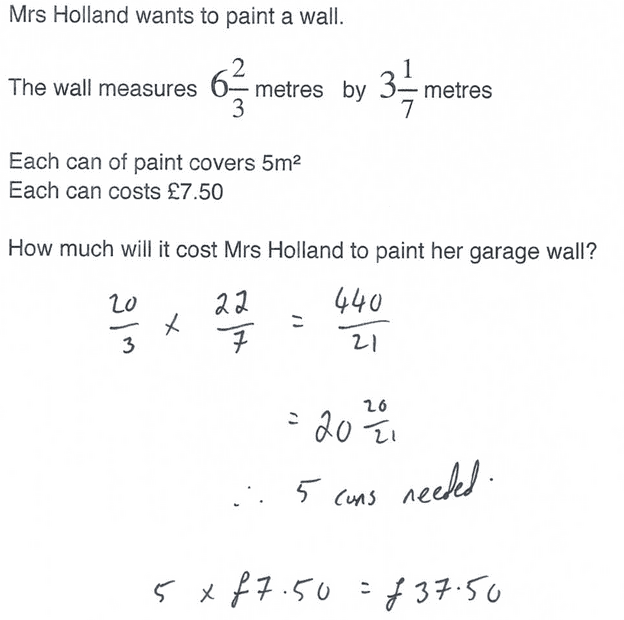 Mrs Holland wants to paint a wall.
The wall measures 6 2/3 metres by 3 1/7 metres
Each can of paint covers 5m²
Each can costs £7.50
How much will it cost Mrs Holland to paint her garage wall?
20/3 × 22/7 = 440/21
= 20 20/21
∴ 5 cans needed.
5 × £7.50 = £37.50